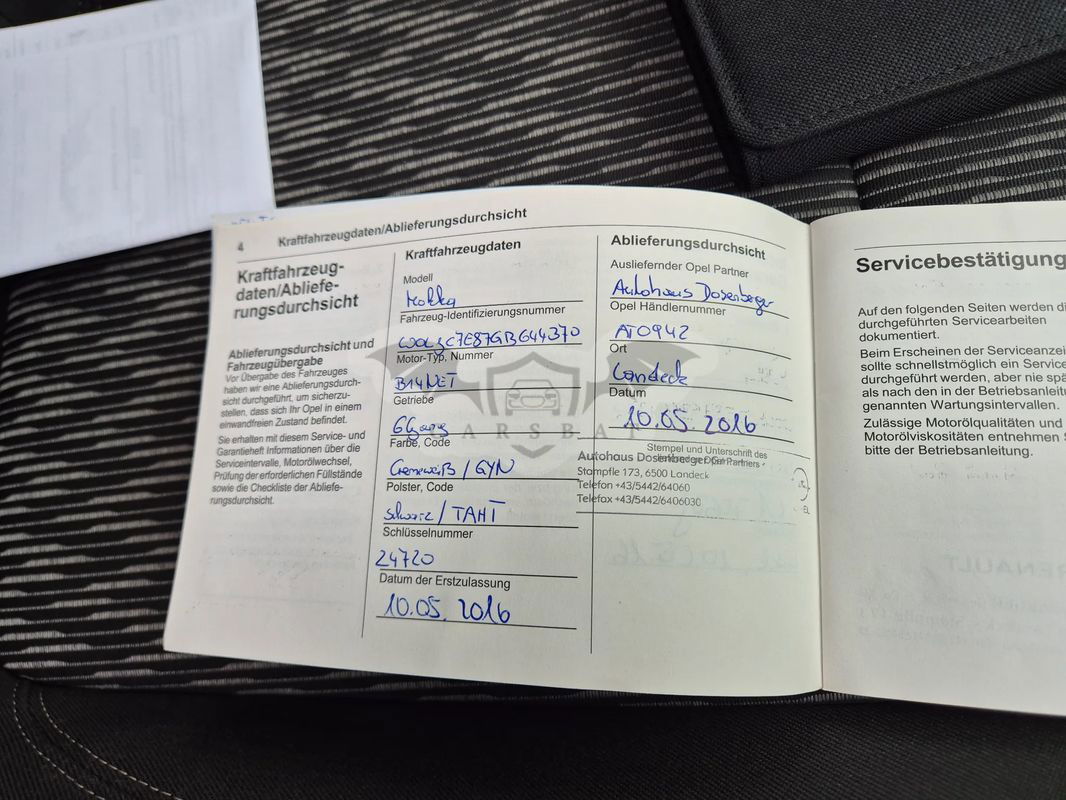 4 Kraftfahrzeugdaten/Ablieferungsdurchsicht
Kraftfahrzeug-
daten/Abliefe-
rungsdurchsicht
Ablieferungsdurchsicht und
Fahrzeugübergabe
Vor Übergabe des Fahrzeuges
haben wir eine Ablieferungsdurch-
sicht durchgeführt, um sicherzu-
stellen, dass sich Ihr Opel in einem
einwandfreien Zustand befindet.
Sie erhalten mit diesem Service- und
Garantieheft Informationen über die
Serviceintervalle, Motorölwechsel,
Prüfung der erforderlichen Füllstände
sowie die Checkliste der Abliefe-
rungsdurchsicht.
Kraftfahrzeugdaten
Modell
Mokka
Fahrzeug-Identifizierungsnummer
W0LJC7E87GB644370
Motor-Typ, Nummer
B14NET
Getriebe
6Gang
Farbe, Code
Cremeweiß / GYN
Polster, Code
schwarz / TAHT
Schlüsselnummer
24720
Datum der Erstzulassung
10.05.2016
Ablieferungsdurchsicht
Ausliefernder Opel Partner
Autohaus Dosenberger
Opel Händlernummer
AT0942
Ort
Landeck
Datum
10.05.2016
Stempel und Unterschrift des
Opel Partners
Autohaus Dosenberger
Stampfle 173, 6500 Landeck
Telefon +43/5442/64060
Telefax +43/5442/6406030
CARSBAT
Servicebestätigung
Auf den folgenden Seiten werden di
durchgeführten Servicearbeiten
dokumentiert.
Beim Erscheinen der Serviceanzei
sollte schnellstmöglich ein Service
durchgeführt werden, aber nie spä
als nach den in der Betriebsanleitu
genannten Wartungsintervallen.
Zulässige Motorölqualitäten und
Motorölviskositäten entnehmen S
bitte der Betriebsanleitung.